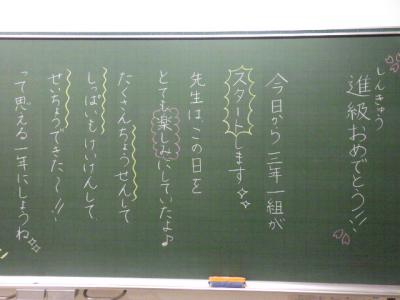 しんきゅう
進級おめでとう!!
今日から三年一組が
スタートします
先生は、この日を
とても楽しみにしていたよ♪
たくさんちょうせんして
しっぱいもけいけんして
せいちょうできた〜!!
って思える一年にしようね